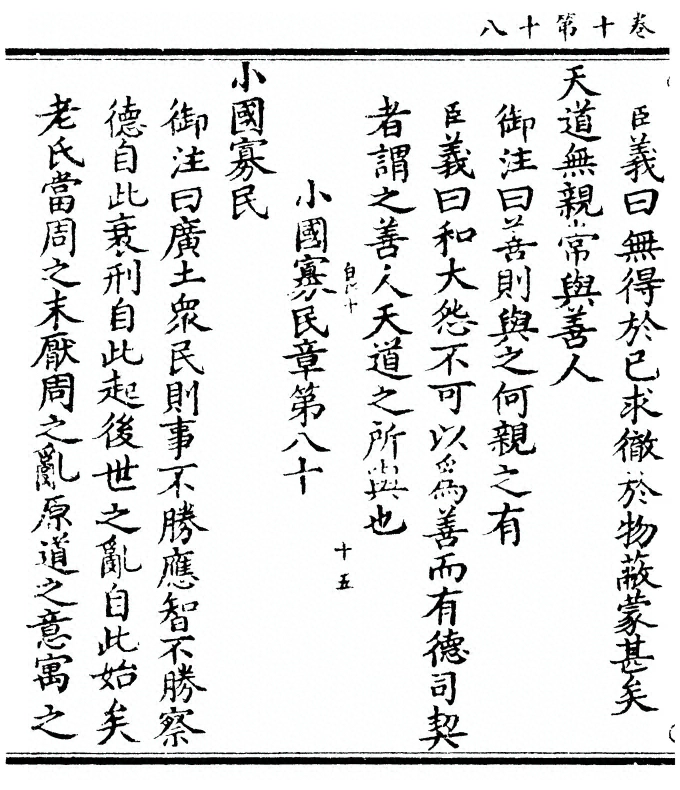 卷十第十八
臣義曰無得於已求徹於物蔽蒙甚矣
天道無親常與善人
御注曰善則與之何親之有
臣義曰和大怨不可以爲善而有德司契
者謂之善人天道之所與也
十五
小國寡民章第八十
小國寡民
御注曰廣土衆民則事不勝應智不勝察
德自此衰刑自此起後世之亂自此始矣
老氏當周之末厭周之亂原道之意寓之